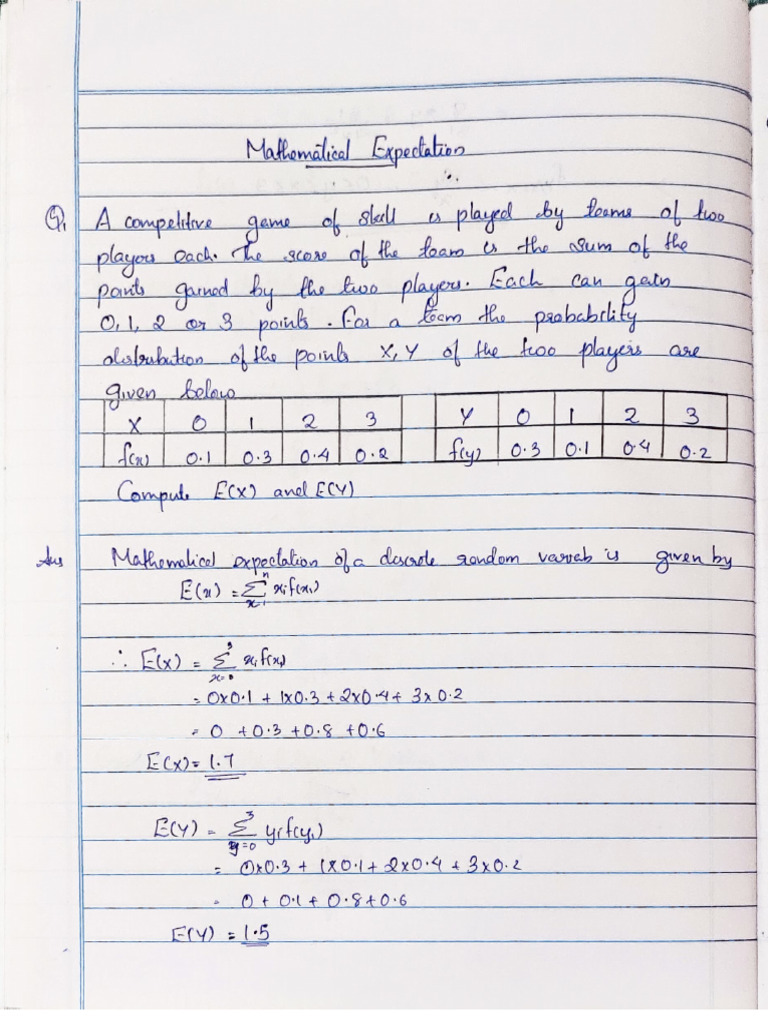 Mathematical Expectation
Q1 A competitive game of skill is played by teams of two
players each. The score of the team is the sum of the
points gained by the two players. Each can gain
0, 1, 2 or 3 points. For a team the probability
distribution of the points X, Y of the two players are
given below
X 0 1 2 3 Y 0 1 2 3
f(x) 0.1 0.3 0.4 0.2 f(y) 0.3 0.1 0.4 0.2
Compute E(X) and E(Y)
Ans Mathematical expectation of a discrete random variab is given by
E(x) = Σ xi f(xi)
∴ E(X) = Σ xi f(xi)
= 0x0.1 + 1x0.3 + 2x0.4 + 3x0.2
= 0 + 0.3 + 0.8 + 0.6
E(X) = 1.7
E(Y) = Σ³y=0 yi f(yi)
= 0x0.3 + 1x0.1 + 2x0.4 + 3x0.2
= 0 + 0.1 + 0.8 + 0.6
E(Y) = 1.5